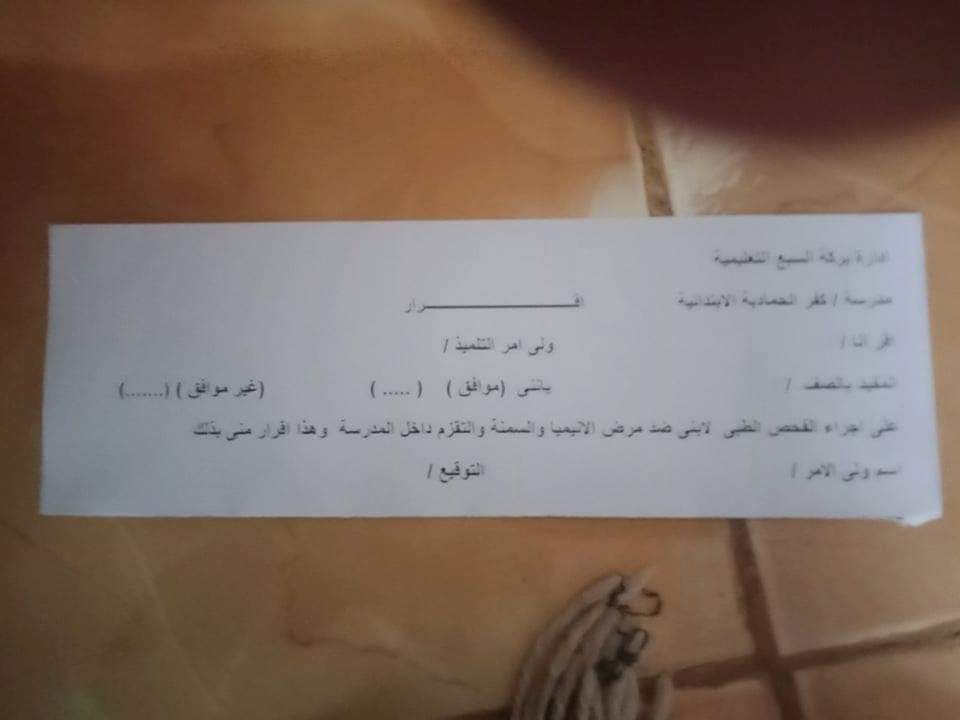 ادارة بركة السبع التعليمية
مدرسة / كفر الحمادية الابتدائية اقـــــــــــــرار
اقر انا / ولى امر التلميذ /
المقيد بالصف / باننى (موافق ) ( ..... ) (غير موافق ) (.......)
على اجراء الفحص الطبى لابنى ضد مرض الانيميا والسمنة والتقزم داخل المدرسة وهذا اقرار منى بذلك
اسم ولى الامر / التوقيع /